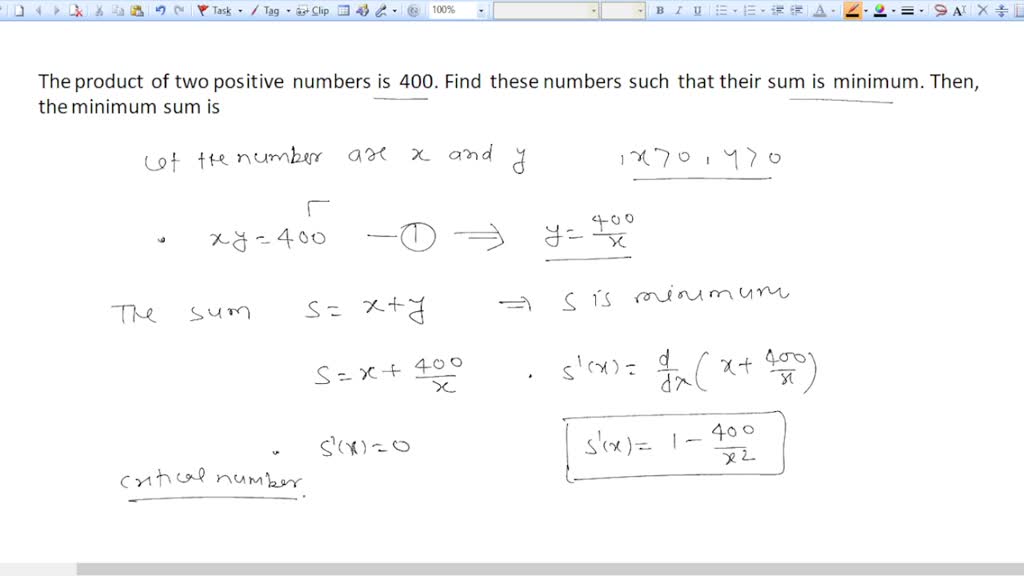 Task Tag Clip 100% B I U A A
The product of two positive numbers is 400. Find these numbers such that their sum is minimum. Then,
the minimum sum is
Let the number are x and y , x>0, y>0
xy=400 —① ⇒ y=400/x
The sum S= x+y ⇒ S is minimum
S=x+ 400/x . S'(x)= d/dx (x+ 400/x)
S'(x)=0 S'(x)= 1- 400/x2
critical number.